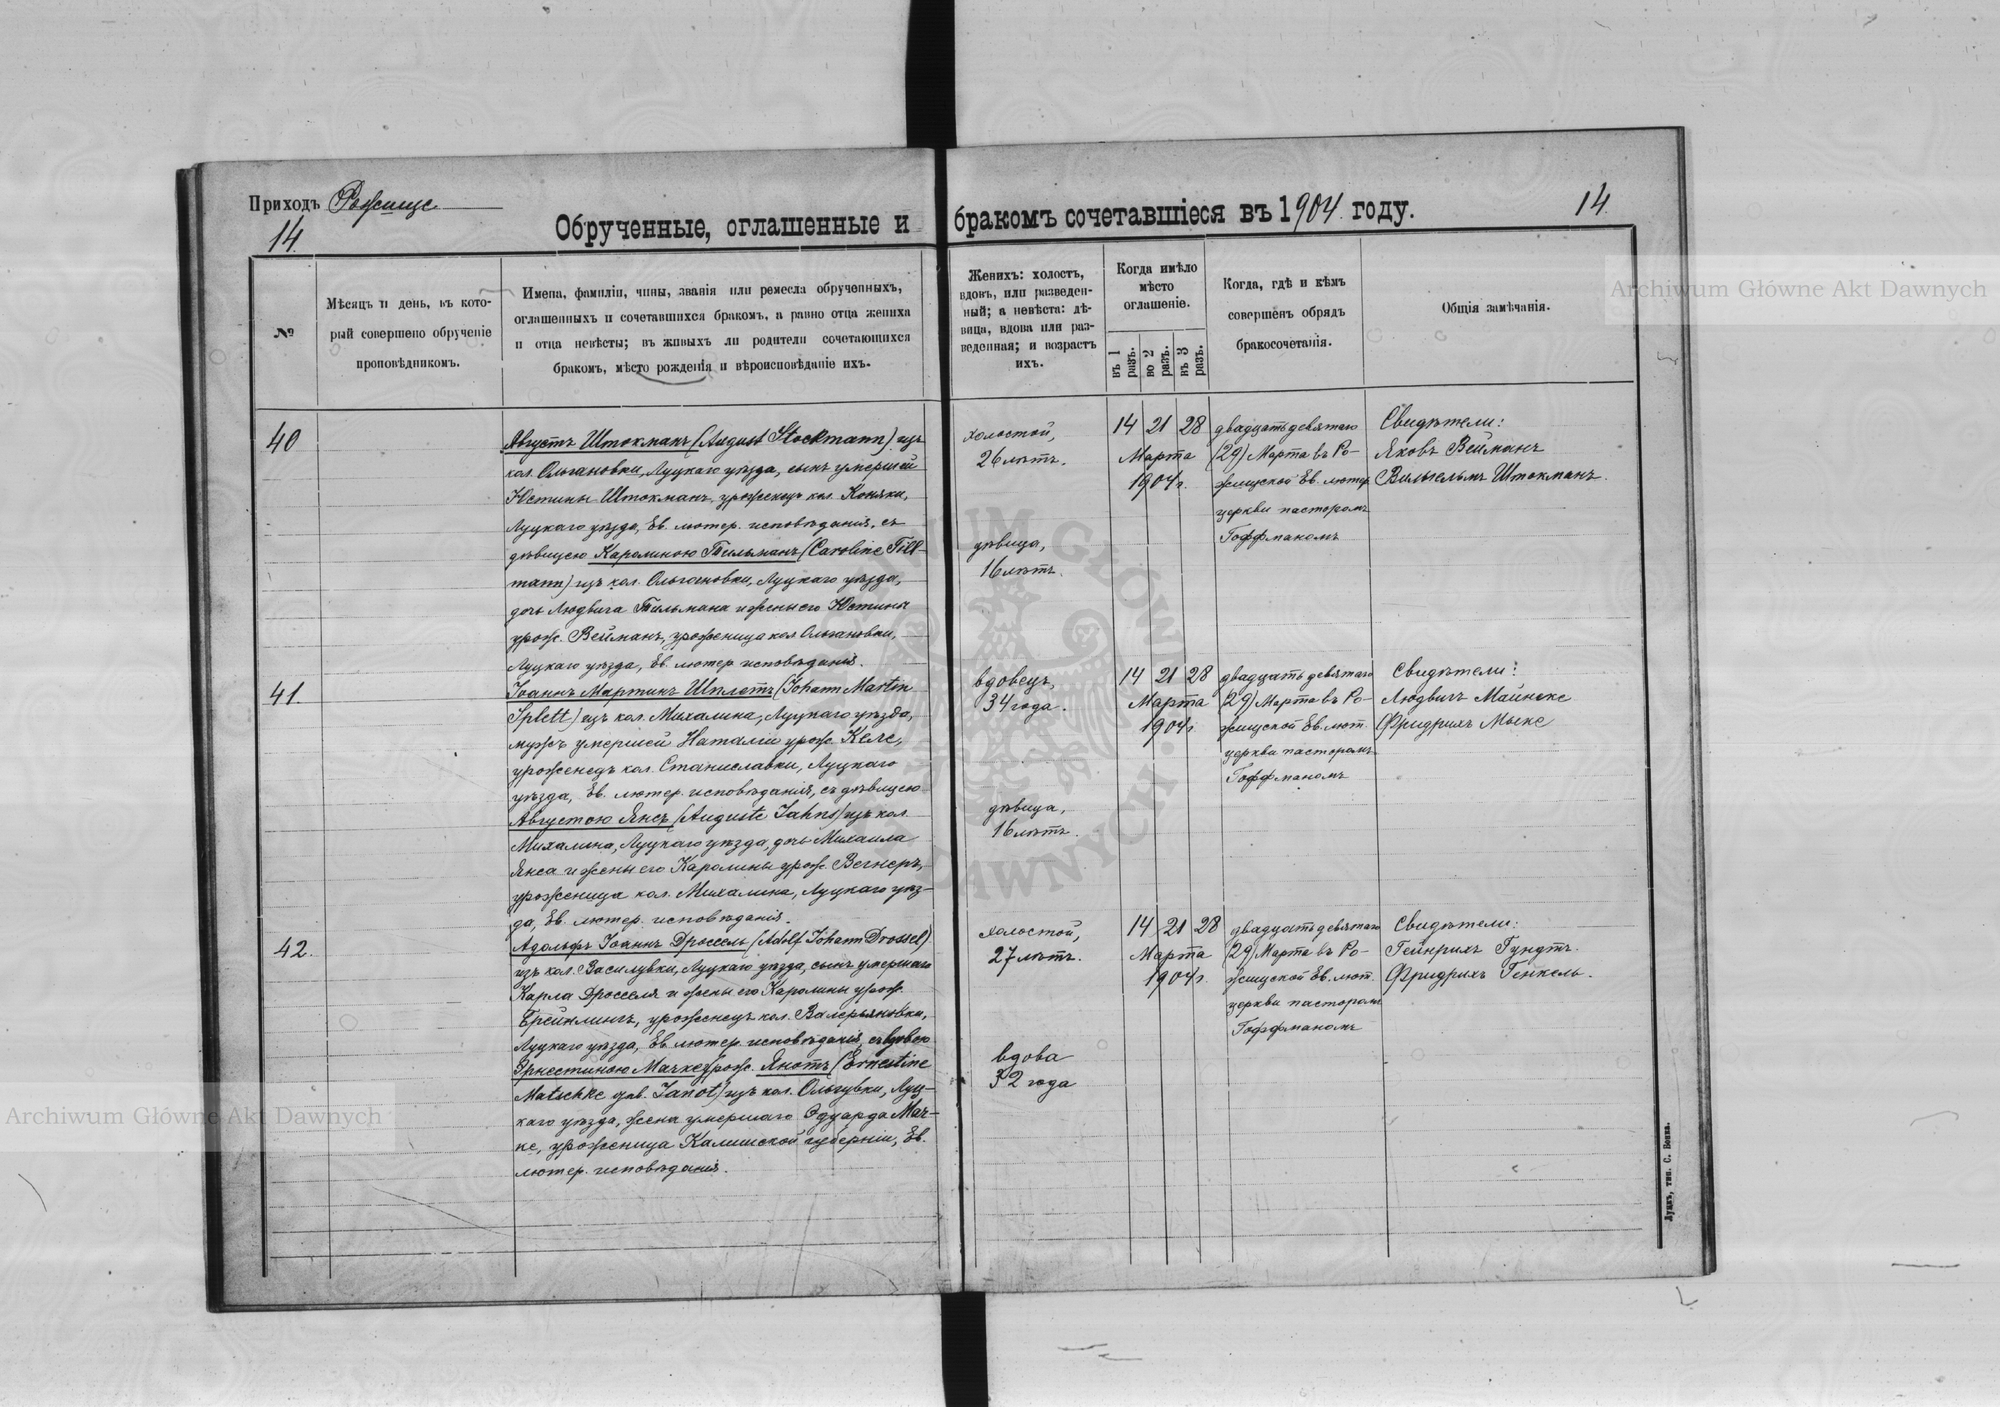 Приходъ Рожище
14
14
Обрученные, оглашенные и бракомъ сочетавшіеся въ 1904 году.
№
Мѣсяцъ и день, въ кото-
рый совершено обрученіе
проповѣдникомъ.
Имена, фамиліи, чины, званія или ремесла обрученныхъ,
оглашенныхъ и сочетавшихся бракомъ, а равно отца жениха
и отца невѣсты; въ живыхъ ли родители сочетающихся
бракомъ, мѣсто рожденія и вѣроисповѣданіе ихъ.
Женихъ: холостъ,
вдовъ, или разведен-
ный; а невѣста: дѣ-
вица, вдова или раз-
веденная; и возрастъ
ихъ.
Когда имѣло
мѣсто
оглашеніе.
въ 1 разъ.
во 2 разъ.
въ 3 разъ.
Когда, гдѣ и кѣмъ
совершёнъ обрядъ
бракосочетанія.
Общія замѣчанія.
40
Августъ Штокманъ (August Stockmann) изъ
кол. Ольгановки, Луцкаго уѣзда, сынъ умершей
Юстины Штокманъ, уроженецъ кол. Коняки,
Луцкаго уѣзда, Ев. лютер. исповѣданія, съ
дѣвицею Каролиною Тильманъ (Caroline Till-
mann) изъ кол. Ольгановки, Луцкаго уѣзда,
дочь Людвига Тильмана и жены его Юстины
урож. Вейманъ, уроженица кол. Ольгановки,
Луцкаго уѣзда, Ев. лютер. исповѣданія.
холостой,
26 лѣтъ.
дѣвица,
16 лѣтъ.
14 21 28
Марта
1904 г.
двадцать девятаго
(29) Марта въ Ро-
жищской Ев. лютер.
церкви пасторомъ
Гоффманомъ
Свидѣтели:
Яковъ Вейманъ
Вильгельмъ Штокманъ.
41.
Іоаннъ Мартинъ Шплетъ (Johann Martin
Splett) изъ кол. Михалина, Луцкаго уѣзда,
мужъ умершей Наталіи урож. Келе,
уроженецъ кол. Станиславки, Луцкаго
уѣзда, Ев. лютер. исповѣданія, съ дѣвицею
Августою Янсъ (Auguste Jahns) изъ кол.
Михалина, Луцкаго уѣзда, дочь Михаила
Янса и жены его Каролины урож. Вегнеръ,
уроженица кол. Михалина, Луцкаго уѣз-
да, Ев. лютер. исповѣданія.
вдовецъ,
34 года.
дѣвица,
16 лѣтъ.
14 21 28
Марта
1904 г.
двадцать девятаго
(29) Марта въ Ро-
жищской Ев. лют.
церкви пасторомъ
Гоффманомъ
Свидѣтели:
Людвигъ Майнске
Фридрихъ Мыкс
42.
Адольфъ Іоаннъ Дроссель (Adolf Johann Drossel)
изъ кол. Василувки, Луцкаго уѣзда, сынъ умершаго
Карла Дросселя и жены его Каролины урож.
Брейнлингъ, уроженецъ кол. Валерьяновки,
Луцкаго уѣзда, Ев. лютер. исповѣданія, съ вдовою
Эрнестиною Мачке урож. Янотъ (Ernestine
Matschke geb. Janot) изъ кол. Ольгувки, Луц-
каго уѣзда, жена умершаго Эдуарда Мач-
ке, уроженица Калишской губерніи, Ев.
лютер. исповѣданія.
холостой,
27 лѣтъ.
вдова
32 года
14 21 28
Марта
1904 г.
двадцать девятаго
(29) Марта въ Ро-
жищской Ев. лют.
церкви пасторомъ
Гоффманомъ
Свидѣтели:
Гейнрихъ Гундтъ.
Фридрихъ Генкель.
Луцкъ, тип. С. Бонка.
Archiwum Główne Akt Dawnych
Archiwum Główne Akt Dawnych
ARCHIWUM GŁÓWNE AKT DAWNYCH